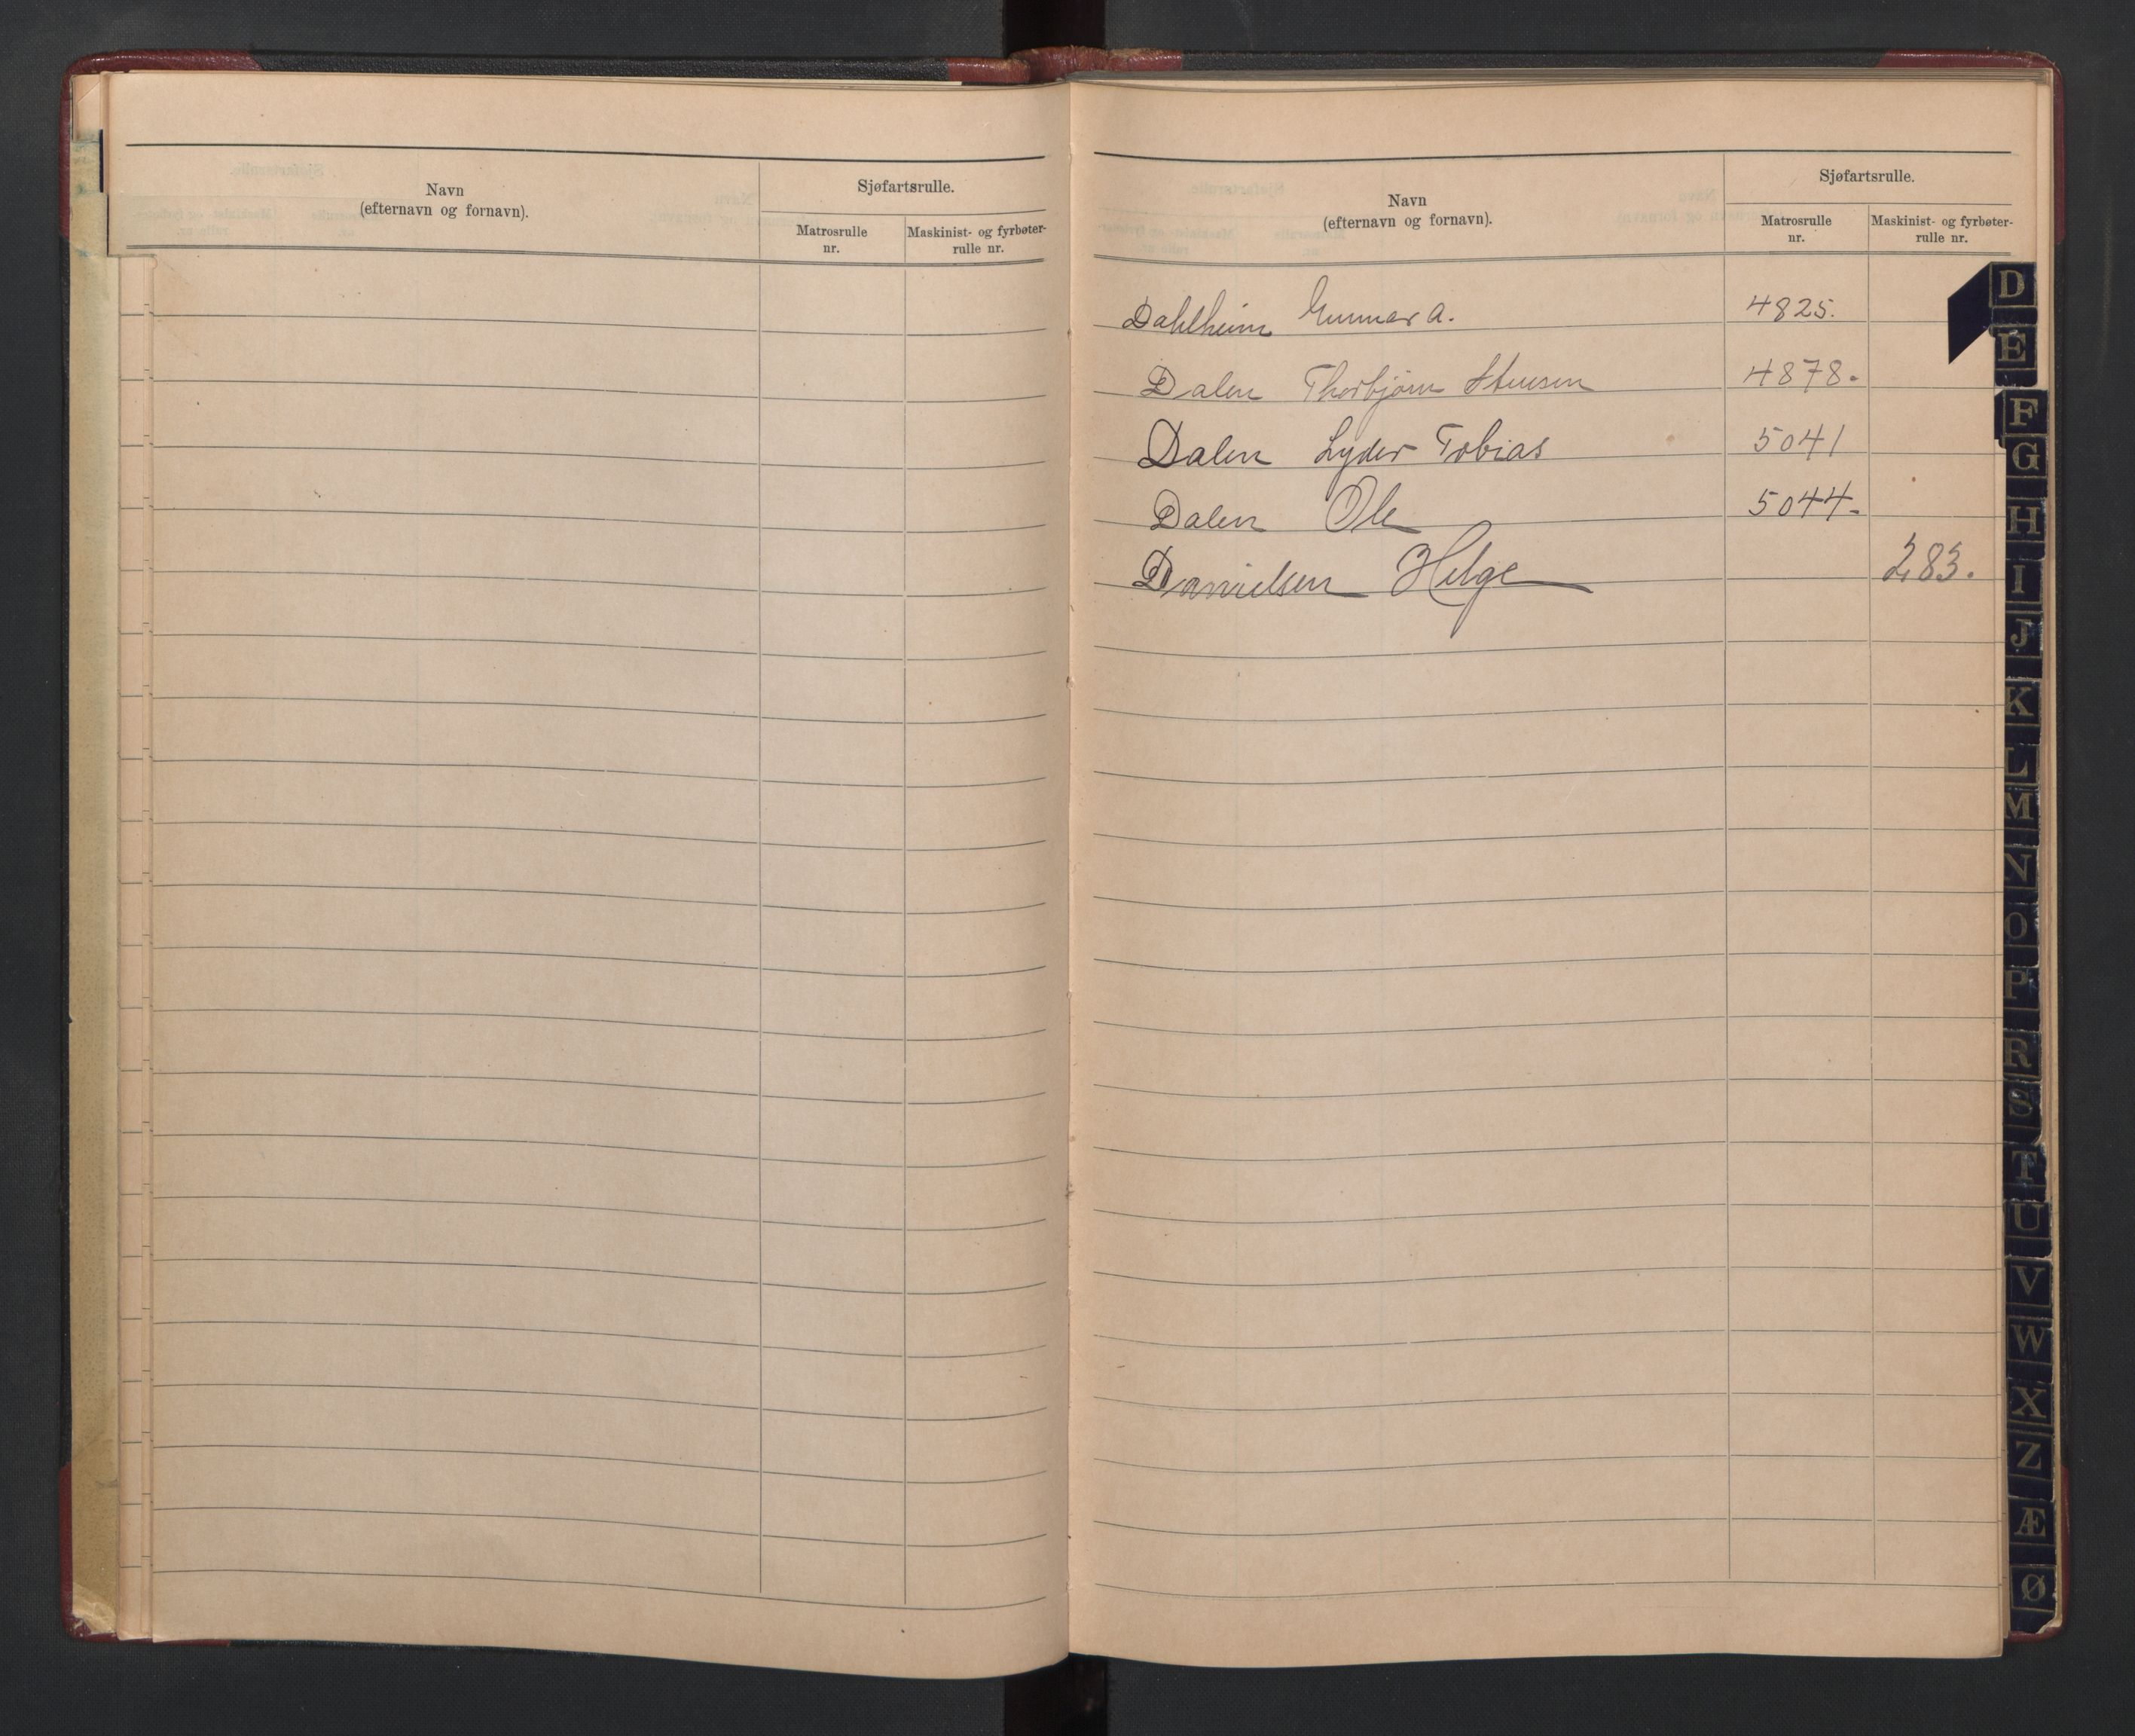 Navn
(efternavn og fornavn).
Sjøfartsrulle.
Matrosrulle
nr.
Maskinist- og fyrbøter-
rulle nr.
Navn
(efternavn og fornavn).
Sjøfartsrulle.
Matrosrulle
nr.
Maskinist- og fyrbøter-
rulle nr.
Dahlheim Gunnar A. 4825.
Dalen Thorbjørn 4878.
Dalen Lyder Tobias 5041
Dalen Ole 5044.
Danielsen Helge 283.
D
E
F
G
H
I
J
K
L
M
N
O
P
R
S
T
U
V
W
X
Z
Æ
Ø